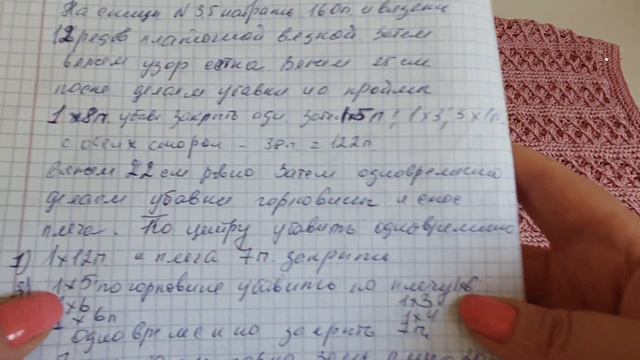 На спицы N 3.5 набрать 160п. и вяжем
12 рядов платочной вязкой. Затем
вяжем узор сетка. Вяжем
после делаем убавки на проймы
1 x 8п. закрыть 1x5п; 1x3; 3x1п
с обеих сторон - 38п. = 122п
Вяжем 22 см ровно Затем одновременно
делаем убавки горловины и скос
плеча. По центру убавить одновременно
1) 1x12п с плеча 7п. закрыть
1x5п по горловине убавить по плечу
1x3
x 6п 1x4
одновременно закрыть 7п